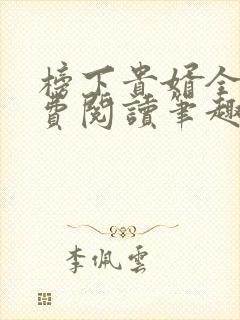 榜下貴婿全
費閱讀筆趣
李佩雲